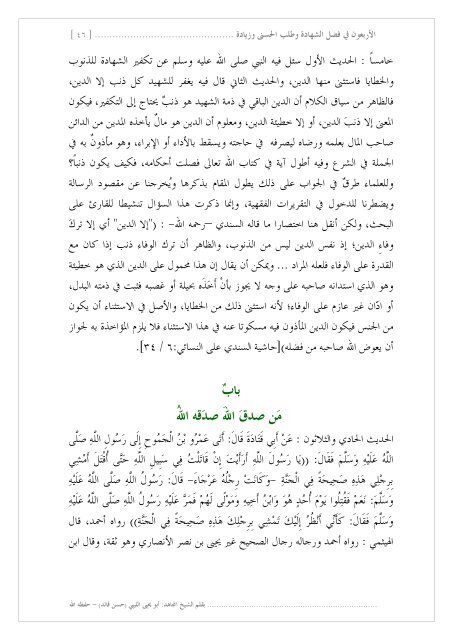 الأربعون في فضل الشهادة وطلب الحسنى وزيادة ........................................ [ ٤٦ ]
خامساً : الحديث الأول سئل فيه النبي صلى الله عليه وسلم عن تكفير الشهادة للذنوب
والخطايا فاستثنى منها الدين، والحديث الثاني قال فيه يغفر للشهيد كل ذنب إلا الدين،
فالظاهر من سياق الكلام أن الدين الباقي في ذمة الشهيد هو ذنبٌ يحتاج إلى التكفير، فيكون
المعنى إلا ذنبَ الدين، أو إلا خطيئة الدين، ومعلوم أن الدين هو مالٌ يأخذه المدين من الدائن
صاحب المال بعلمه ورضاه ليصرفه في حاجته ويسقط بالأداء أو الإبراء، وهو مأذونٌ به في
الجملة في الشرع وفيه أطول آية في كتاب الله تعالى فصلت أحكامه، فكيف يكون ذنباً؟
وللعلماء طرقٌ في الجواب على ذلك يطول المقام بذكرها ويُخرجنا عن مقصود الرسالة
ويضطرنا للدخول في التقريرات الفقهية، وإنما ذكرت هذا السؤال تنشيطا للقارئ على
البحث، ولكن أنقل هنا اختصارا ما قاله السندي –رحمه الله– : ("إلا الدين" أي إلا تركَ
وفاءِ الدين؛ إذ نفس الدين ليس من الذنوب، والظاهر أن ترك الوفاء ذنب إذا كان مع
القدرة على الوفاء فلعله المراد ... ويمكن أن يقال إن هذا محمول على الدين الذي هو خطيئة
وهو الذي استدانه صاحبه على وجه لا يجوز بأنْ أَخَذَه بحيلة أو غصبه فثبت في ذمته البدل،
أو ادّان غير عازم على الوفاء؛ لأنه استثنى ذلك من الخطايا، والأصل في الاستثناء أن يكون
من الجنس فيكون الدين المأذون فيه مسكوتا عنه في هذا الاستثناء فلا يلزم المؤاخذة به لجواز
أن يعوض الله صاحبه من فضله)[حاشية السندي على النسائي:٦ / ٣٤].
بابٌ
مَن صدقَ اللهَ صدَقه اللهُ
الحديث الحادي والثلاثون : عَنْ أَبِي قَتَادَةَ قَالَ: أَتَى عَمْرُو بْنُ الْجَمُوحِ إِلَى رَسُولِ اللَّهِ صَلَّى
اللَّهُ عَلَيْهِ وَسَلَّمَ فَقَالَ: ((يَا رَسُولَ اللَّهِ أَرَأَيْتَ إِنْ قَاتَلْتُ فِي سَبِيلِ اللَّهِ حَتَّى أُقْتَلَ أَمْشِي
بِرِجْلِي هَذِهِ صَحِيحَةً فِي الْجَنَّةِ –وَكَانَتْ رِجْلُهُ عَرْجَاءَ– قَالَ: رَسُولُ اللَّهِ صَلَّى اللَّهُ عَلَيْهِ
وَسَلَّمَ: نَعَمْ فَقُتِلُوا يَوْمَ أُحُدٍ هُوَ وَابْنُ أَخِيهِ وَمَوْلًى لَهُمْ فَمَرَّ عَلَيْهِ رَسُولُ اللَّهِ صَلَّى اللَّهُ عَلَيْهِ
وَسَلَّمَ فَقَالَ: كَأَنِّي أَنْظُرُ إِلَيْكَ تَمْشِي بِرِجْلِكَ هَذِهِ صَحِيحَةً فِي الْجَنَّةِ)) رواه أحمد، قال
الهيثمي : رواه أحمد ورجاله رجال الصحيح غير يحيى بن نصر الأنصاري وهو ثقة، وقال ابن
........................................ بقلم الشيخ المجاهد: أبو يحيى الليبي (حسن قائد) – حفظه الله